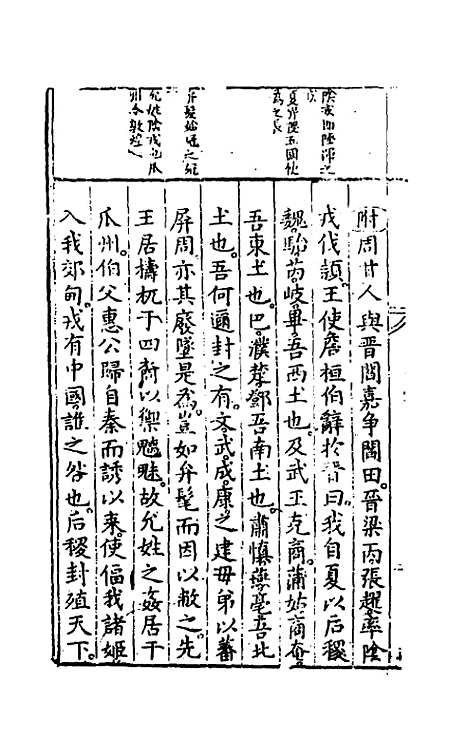 陰戎即陸渾之
戎
夏丗陞五國世
為之長
弁髦始冠之冠
允姓陰戎之祖瓜
州今敦煌
附周甘人與晉閻嘉爭閻田。晉梁丙張趯率陰
戎伐潁。王使詹桓伯辭於晉曰。我自夏以后稷
魏駘芮岐畢。吾西土也。及武王克商。蒲姑商奄。
吾東土也。巴濮楚鄧。吾南土也。肅慎燕亳。吾北
土也。吾何邇封之有。文武成康。之建母弟。以蕃
屏周。亦其廢墜是為。豈如弁髦而因以敝之。先
王居檮杌于四裔以禦魑魅。故允姓之姦居于
瓜州。伯父惠公歸自秦而誘以來。使偪我諸姬
入我郊甸。戎有中國。誰之咎也。后稷封殖天下。